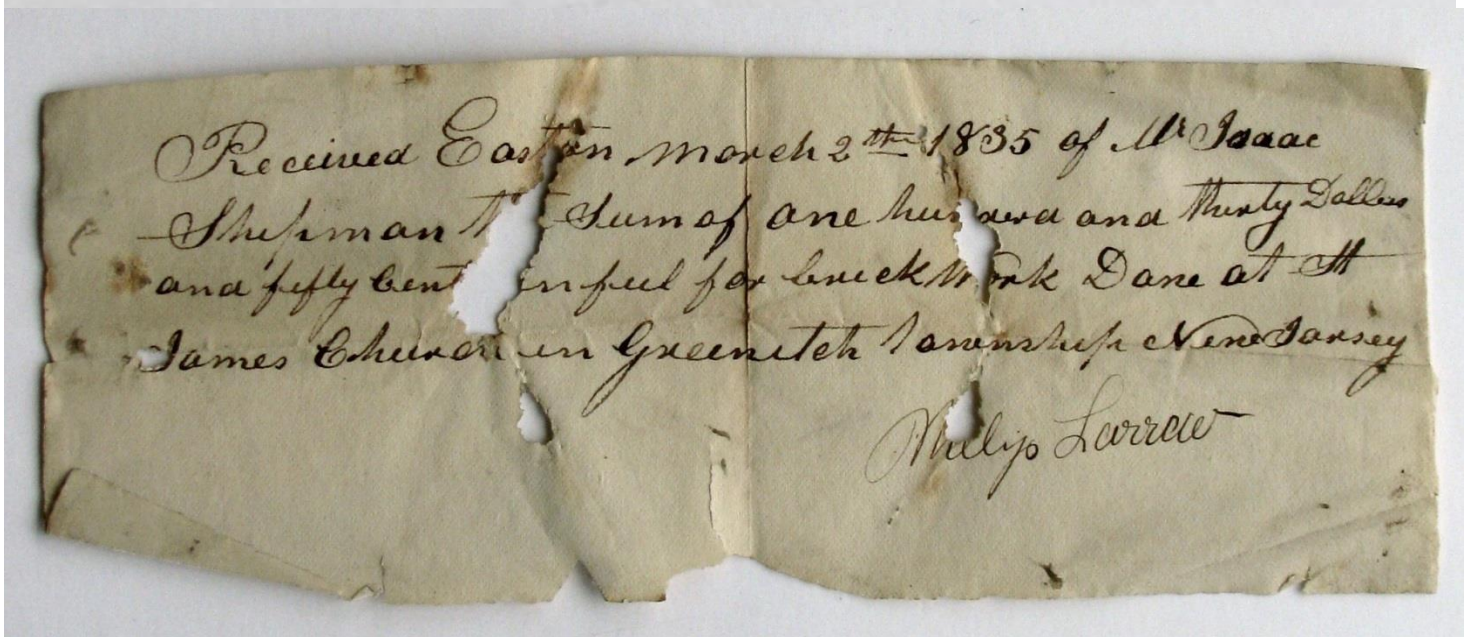 Received Easton March 2th 1835 of Mr Isaac
Shipman Sum of one hundred and thirty Dollars
and fifty Cent in full for brick Work Done at St
James Church in Greenitch Township New Jarsey
Philip Larraw